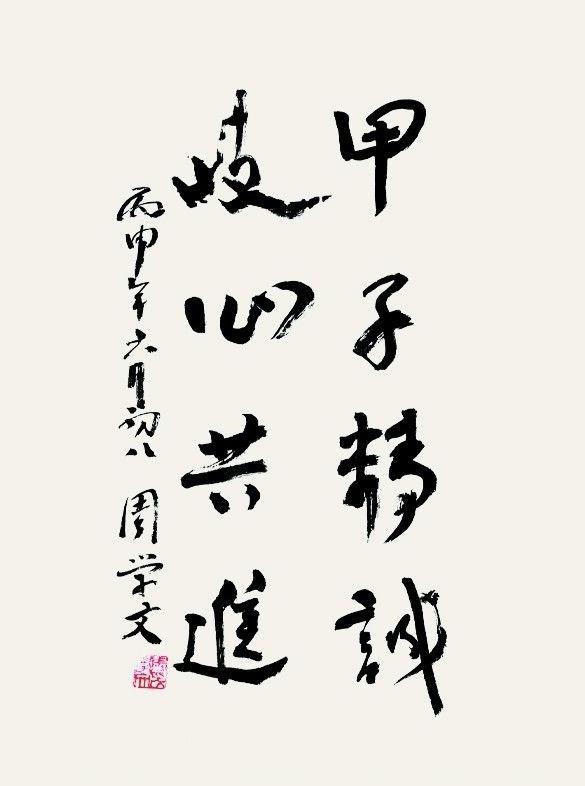 甲子精誠
岐心共進
丙申年六月初八 周学文